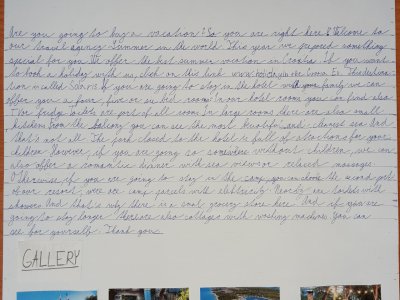 Are you going to buy a vacation? So you are right here! Welcome to
our travel agency Summer in the world. This year we prepared something
special for you. We offer the best summer vacation in Croatia. If you want
to book a holiday with us, click on this link
you are going to stay in the hotel with your family we can
offer you a four, five or six bed rooms. In our hotel rooms you can find also
TV or fridge. Toilets are part of all room. In large rooms there are also small
kitchens. From the balcony you can see the most beautiful and clearest sea. And
that's not all. The park closed to the hotel is full of atractions for your
children. However, if you are going so somewhere without children, we can
also offer a romantic dinner with sea view or relaxed massages.
Otherwise if you are going to stay in the camp, you can choose the second part
of our resort. were are camp parcels with elektricity. Nearby are toilets with
showers. And that's why there is a smal grocery store here. And if you are
going to stay longer thereare also cottages with washing machines. You can
see for yourself. Thank you.
GALLERY